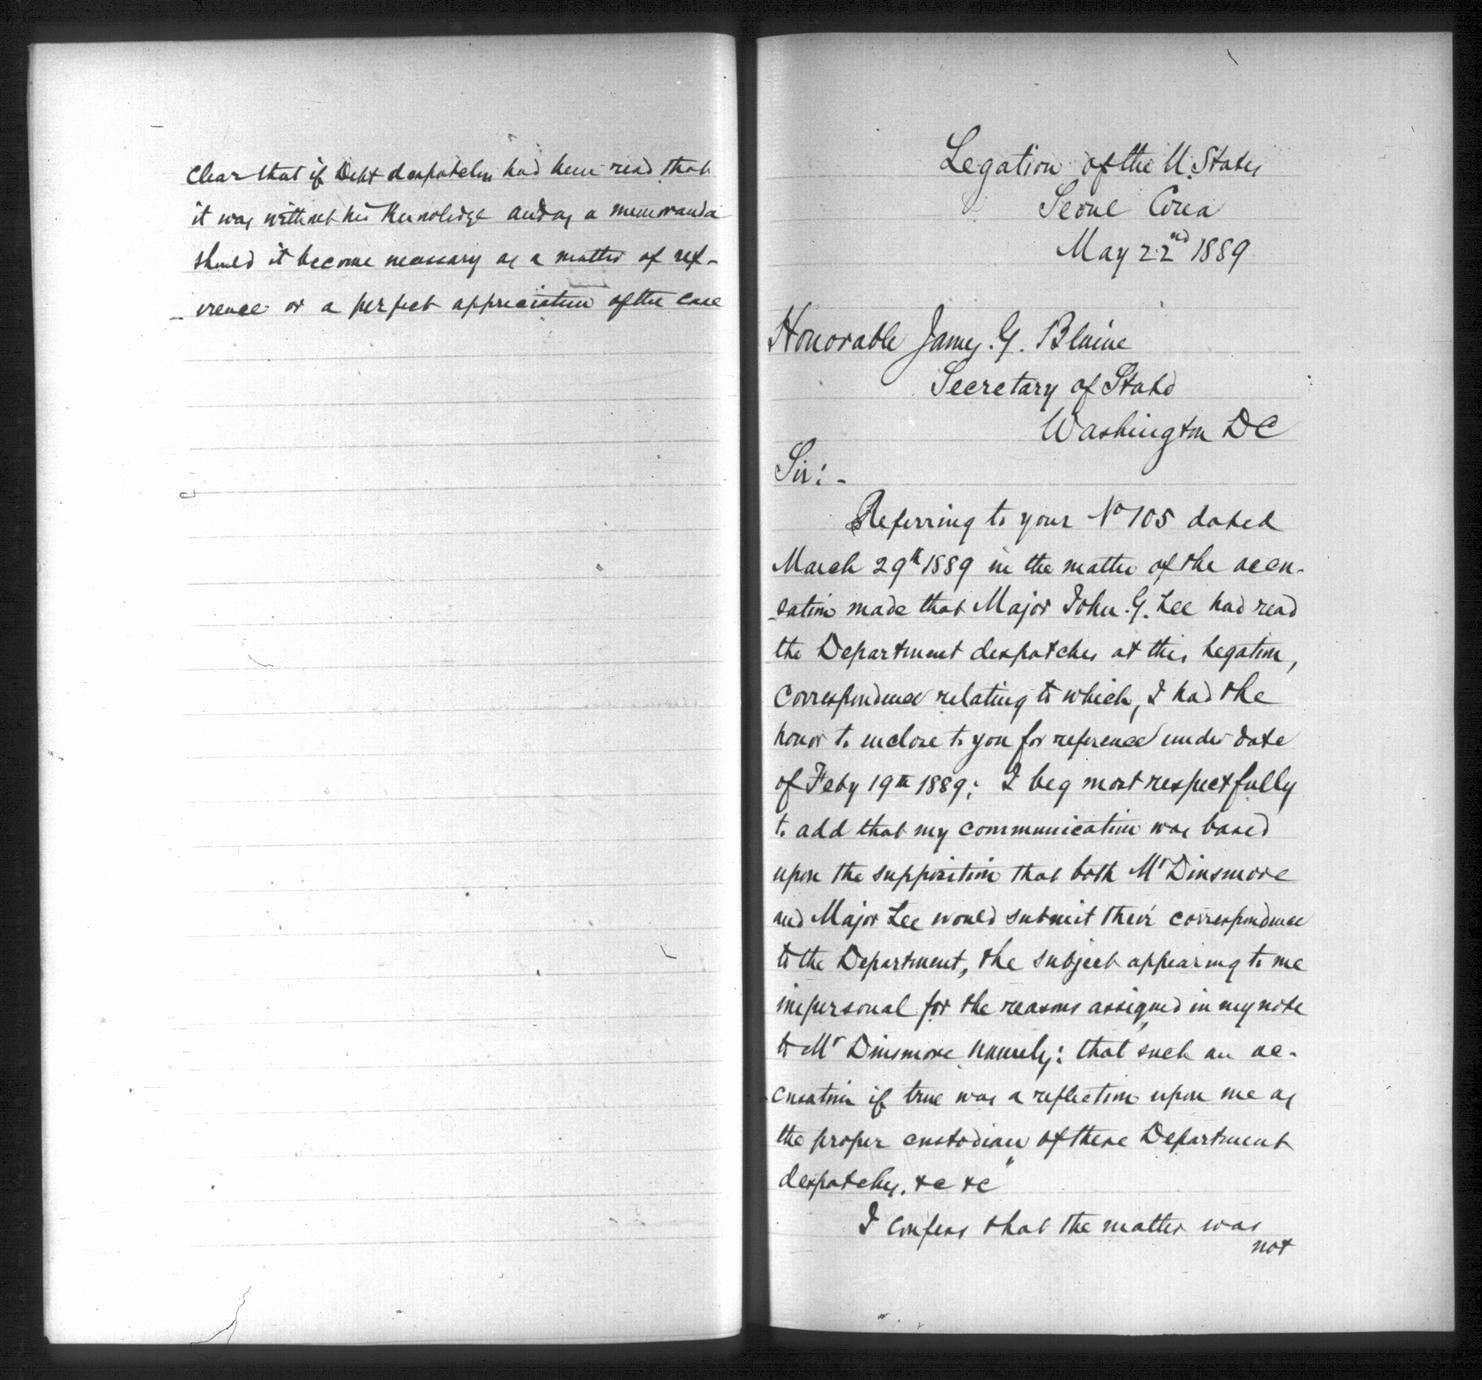 clear that if Dept despatches had been read that
it was without his Knowledge and as a memoranda
should it become necessary as a matter of ref-
-erence or a perfect appreciation of the case
Legation of the U. States
Seoul Corea
May 22nd 1889
Honorable James. G. Blaine
Secretary of State
Washington DC
Sir:-
Referring to your No 105 dated
March 29th 1889 in the matter of the accu-
-sation made that Major John. G. Lee had read
the Department despatches at this Legation,
correspondence relating to which, I had the
honor to inclose to you for reference under date
of Feby 19th 1889; I beg most respectfully
to add that my communication was based
upon the supposition that both Mr Dinsmore
and Major Lee would submit their correspondence
to the Department, the subject appearing to me
impersonal for the reasons assigned in my note
to Mr Dinsmore namely: that "such an ac-
-cusation if true was a reflection upon me as
the proper custodian of these Department
despatches. &c &c"
I confess that the matter was
not